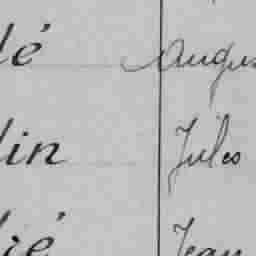 lé Augus
lin Jules
ié Jean